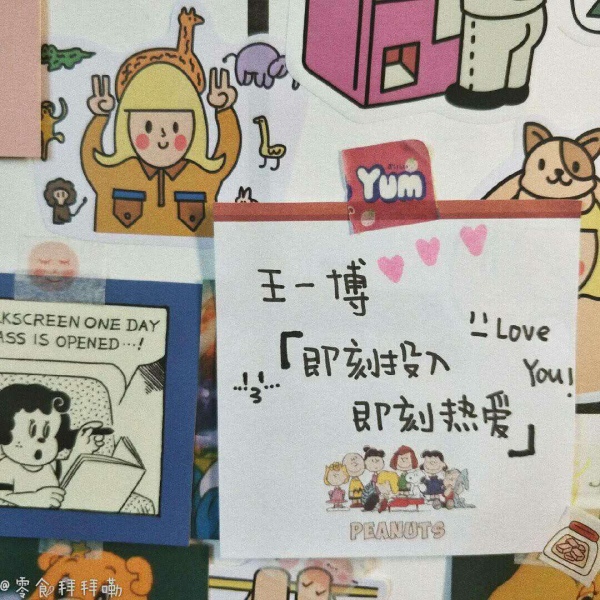 Yum
王一博
Love
You!
「即刻投入
即刻热爱」
PEANUTS
LKSCREEN ONE DAY
ASS IS OPENED...!
@零食拜拜嘞